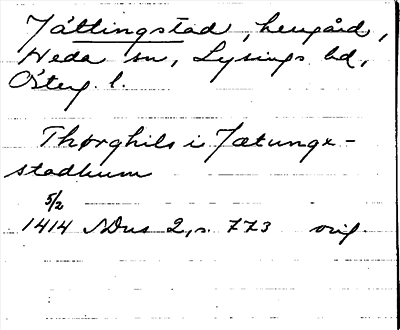 Jättingstad, herrgård,
Heda sn, Lysings hd,
Österg. l.
Thørghils i Jætunge-
stadhum
5/2
1414 SDns 2, s. 773 orig.